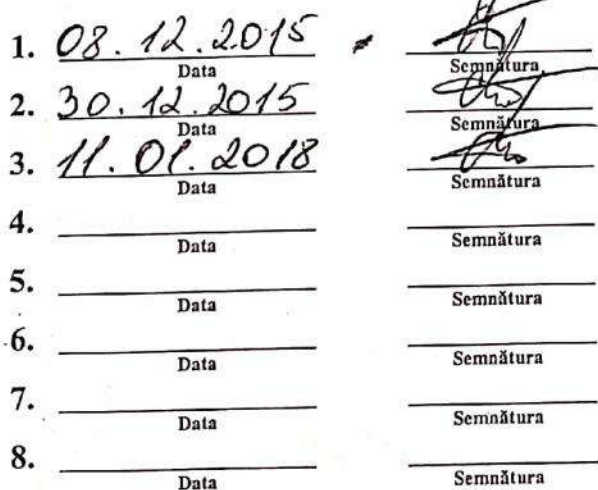 1. 08.12.2015
Data Semnătura
2. 30.12.2015
Data Semnătura
3. 11.01.2018
Data Semnătura
4.
Data Semnătura
5.
Data Semnătura
6.
Data Semnătura
7.
Data Semnătura
8.
Data Semnătura